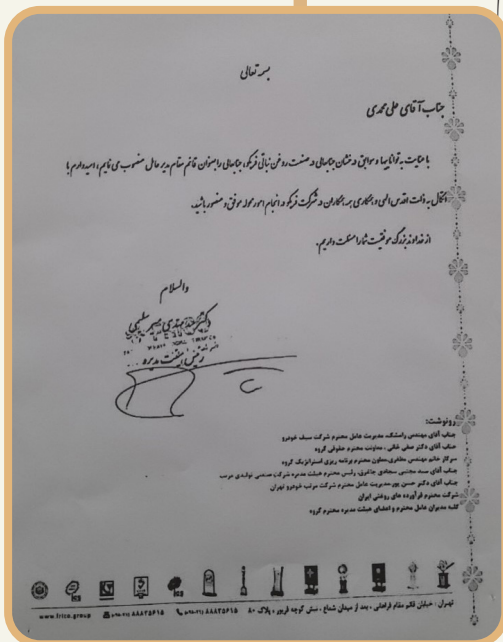 بسمه تعالی
جناب آقای علی محمدی
با عنایت به توانایها و سوابق درخشان جنابعالی در صنعت روغن نباتی فریکو، جنابعالی را بعنوان قائم مقام مدیر عامل منصوب می نمایم، امیدوارم با
اتکال به ذات اقدس الهی و همکاری سایر همکاران در شرکت فریکو در انجام امور محوله موفق و منصور باشید.
از خداوند بزرگ موفقیت شما را مسئلت داریم.
والسلام
رئیس هیئت مدیره
رونوشت:
جناب آقای مهندس رامشک، مدیریت عامل محترم شرکت سیف خودرو
جناب آقای دکتر صفی خانی، معاونت محترم حقوقی گروه
سرکار خانم مهندس مظفری، معاون محترم برنامه ریزی استراتژیک گروه
جناب آقای سید مجتبی سجادی جاغرق، رئیس محترم هیئت مدیره شرکت صنعتی تولیدی مرتب
جناب آقای دکتر حسن پور مدیریت عامل محترم شرکت مرتب خودرو تهران
شرکت محترم فرآورده های روغنی ایران
کلیه مدیران عامل محترم و اعضای هیئت مدیره محترم گروه
تهران، خیابان قائم مقام فراهانی، بعد از میدان شعاع، نبش کوچه فریور، پلاک ۸۰
(+۹۸-۲۱) ۸۸۸۲۵۶۱۵
(+۹۸-۲۱) ۸۸۸۲۵۶۱۵
www.frico.group